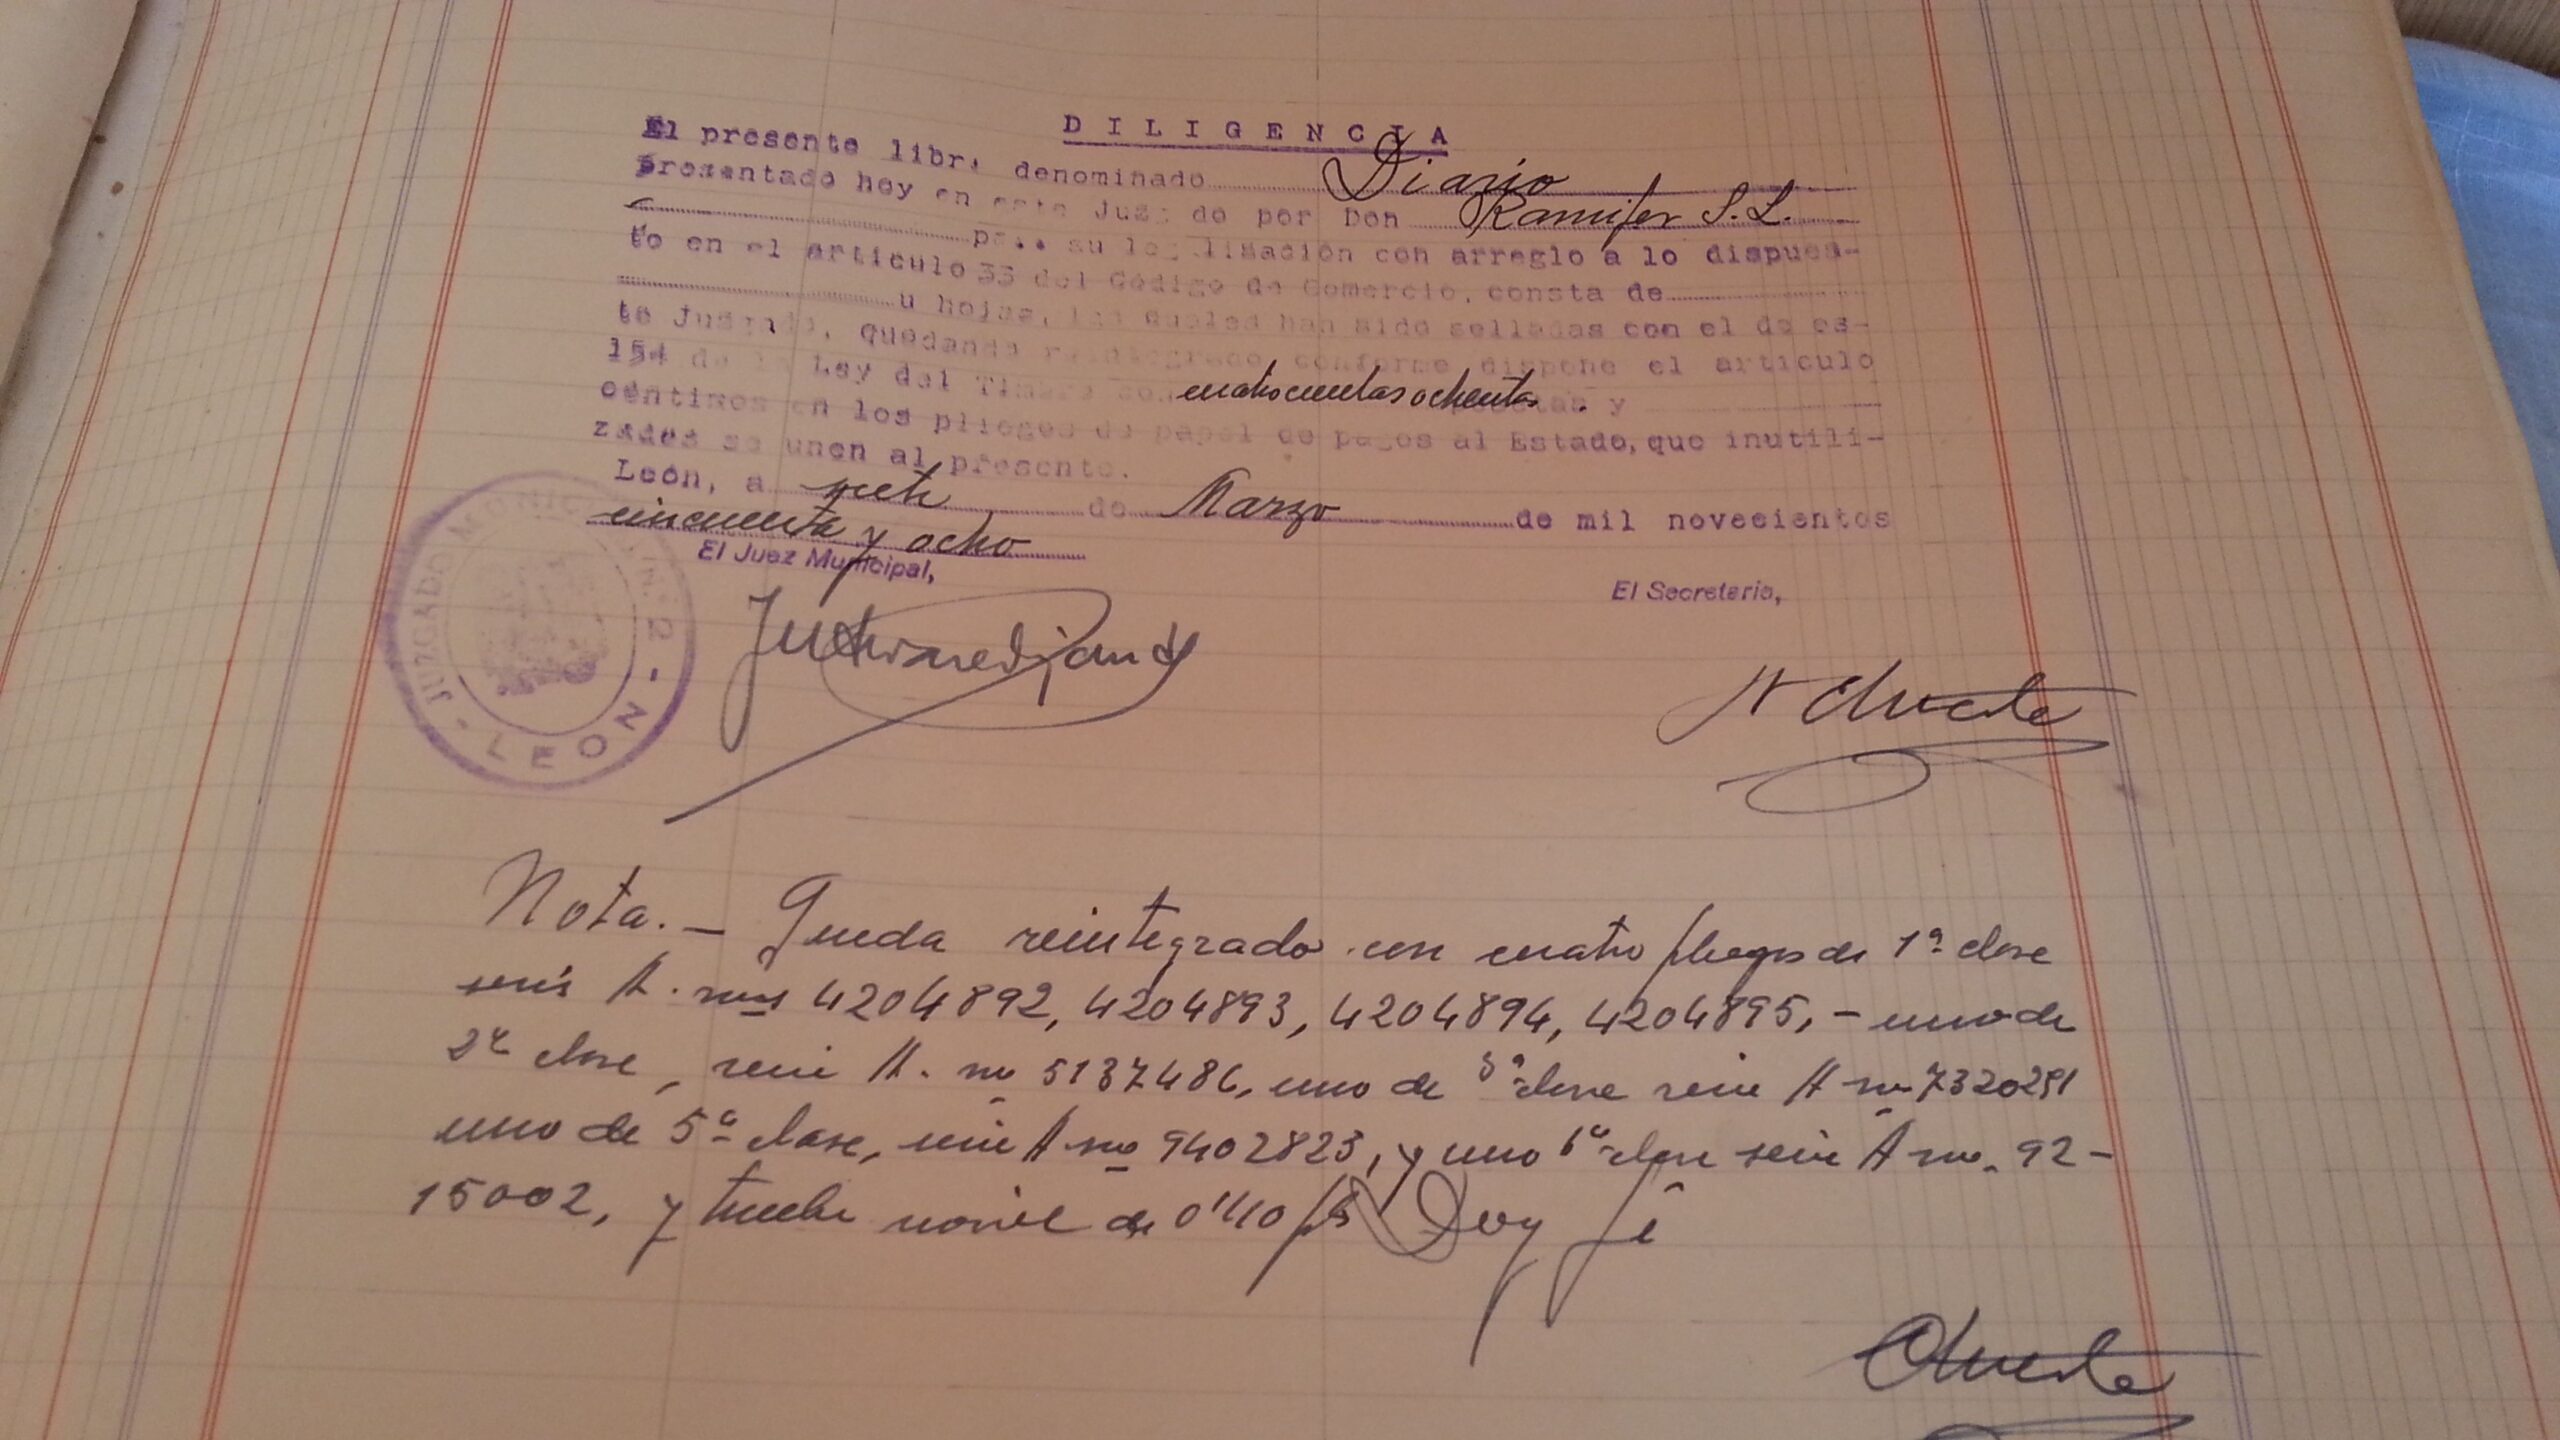 DILIGENCIA
El presente libr, denominado Diario
presentado hoy en este Juzgado por Don Ramifer S.L.
para su legalización con arreglo a lo dispues-
to en el articulo 33 del Código de Comercio, consta de
u hojas, las cuales han sido selladas con el de es-
te Juzgado, quedando reintegrado conforme dispone el articulo
154 de la Ley del Timbre con cuatrocientas ochenta pesetas y
centimos en los pliegos de papel de pagos al Estado, que inutili-
zados se unen al presente.
León, a siete de Marzo de mil novecientos
cincuenta y ocho
El Juez Municipal,
El Secretario,
JUZGADO MUNICIPAL Nº 2 - LEON -
Nota.- Queda reintegrado con cuatro pliegos de 1ª clase
serie A. nos 4204892, 4204893, 4204894, 4204895, - uno de
2ª clase, serie A. no 5137486, uno de 3ª clase serie A no 7320291
uno de 5ª clase, serie A no 9402823, y uno 6ª clase serie A no. 92-
15002, y timbre movil de 0'40 pts Doy fe